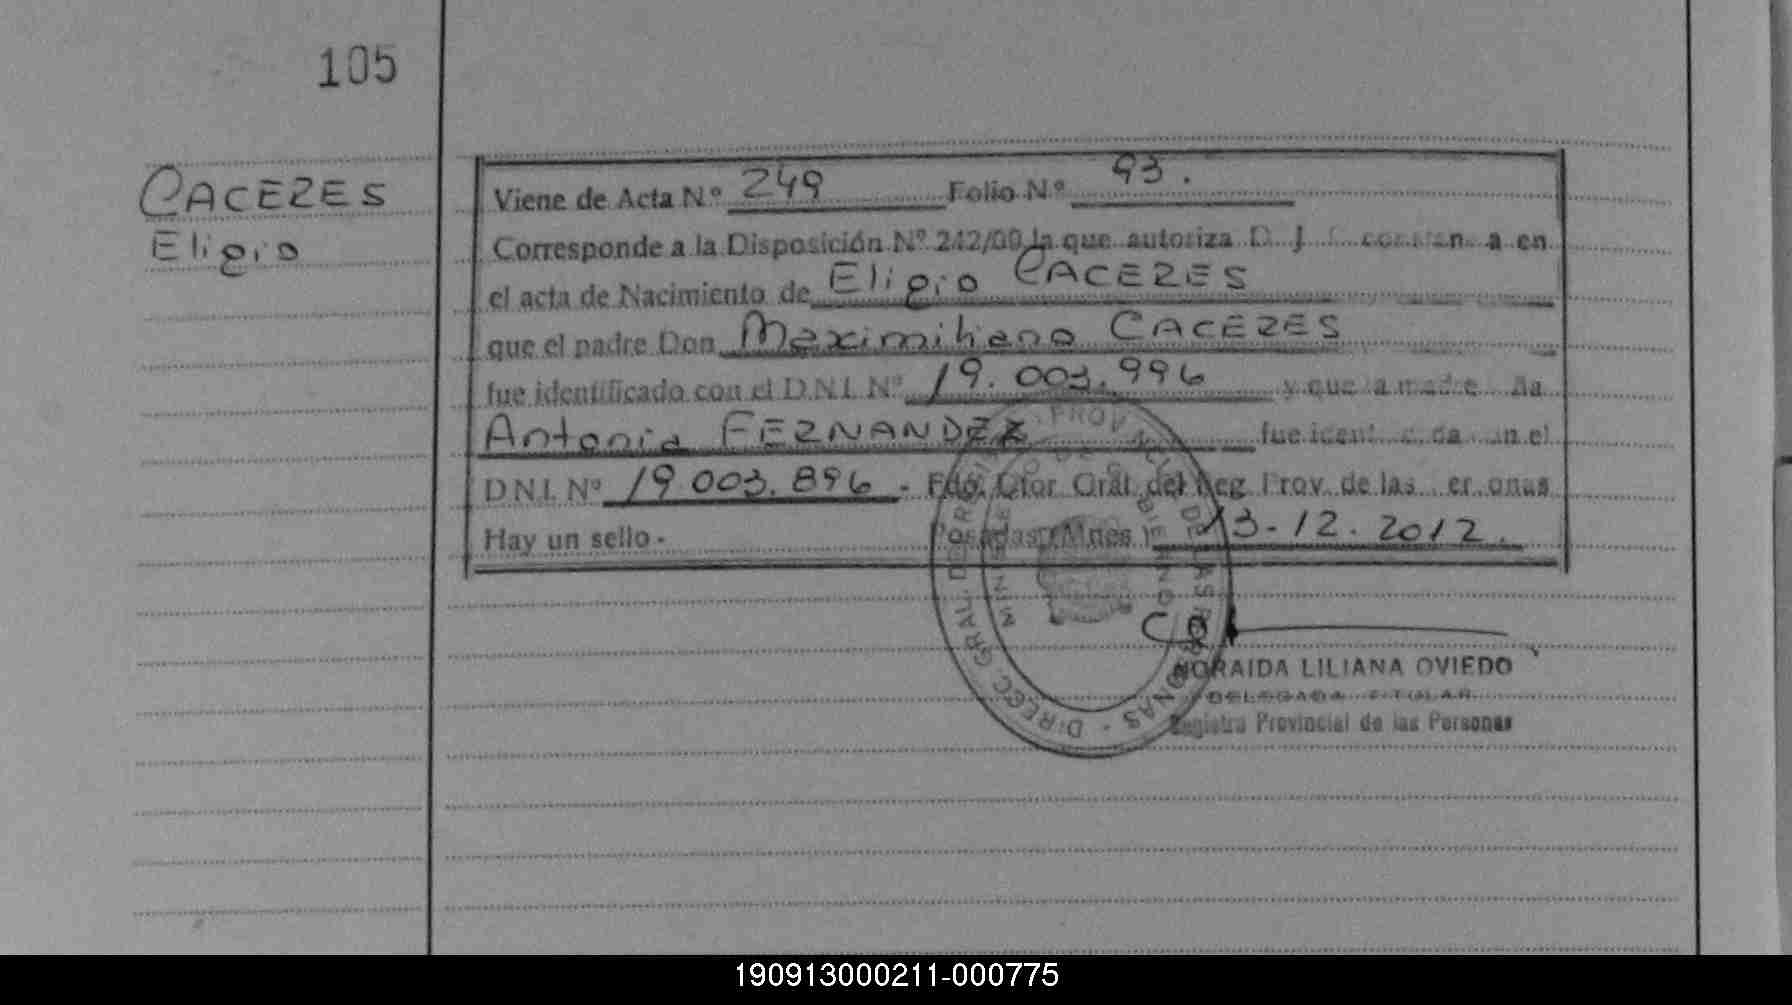 105
CACERES
Eligio
Viene de Acta Nº 249 Folio Nº 93.
Corresponde a la Disposición Nº 242/00 la que autoriza D. J. en
el acta de Nacimiento de Eligio CACERES
que el padre Don Maximiliano CACERES
fue identificado con el D.N.I. Nº 19.003.996 y que la madre Ña
Antonia FERNANDEZ fue en el
D.N.I. Nº 19.003.896 - Fdo. Gral. del Reg. Prov. de las
Hay un sello - Posadas (Mnes.) 13-12.2012.
DIRECC. GRAL. DEL REGISTRO PROVINCIAL DE LAS PERSONAS
MINISTERIO DE GOBIERNO
NORAIDA LILIANA OVIEDO
DELEGADA TITULAR
Registro Provincial de las Personas
190913000211-000775